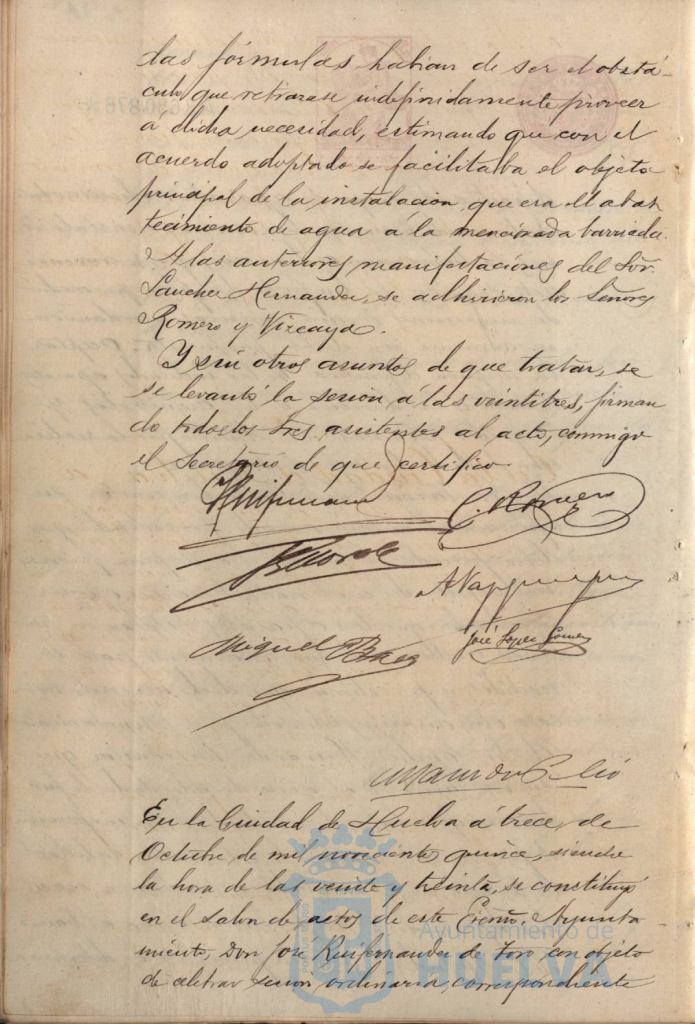 las fórmulas habian de ser el obstá-
culo que retrasase indefinidamente proveer
a dicha necesidad, estimando que con el
acuerdo adoptado se facilitaba el objeto
principal de la instalacion, que era el abas
tecimiento de agua á la mencionada barriada.
A las anteriores manifestaciones del Sõr.
Sanchez Hernandez, se adhirieron los Señores
Romero y Vizcaya.
Y sin otros asuntos de que tratar, se
se levantó la sesion á las veintitres, firman
do todos los tres asistentes al acto, conmigo
el Secretario de que certifico.
C. Romero
A Vazquez
Miguel Báez
José Lopez Gomez
En la Ciudad de Huelva á trece de
Octubre de mil novecientos quince, siendo
la hora de las veinte y treinta, se constituyó
en el salon de actos de este Excmõ. Ayunta-
miento, Don José Ruifernandez de Toro con objeto
de celebrar sesion ordinaria, correspondiente
Ayuntamiento de
HUELVA